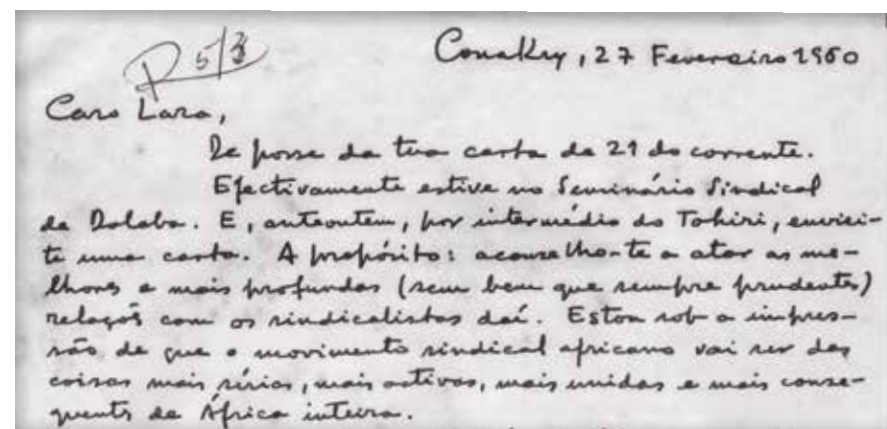 R 5/3
Conakry, 27 Fevereiro 1960
Caro Lara,
De posse da tua carta de 21 do corrente.
Efectivamente estive no Seminário Sindical
de Dalaba. E, anteontem, por intermédio do Tchiri, enviei-
te uma carta. A propósito: aconselho-te a atar as me-
lhores e mais profundas (sem bem que sempre prudentes)
relações com os sindicalistas daí. Estou sob a impres-
são de que o movimento sindical africano vai ser das
coisas mais sérias, mais activas, mais unidas e mais conse-
quents da África inteira.